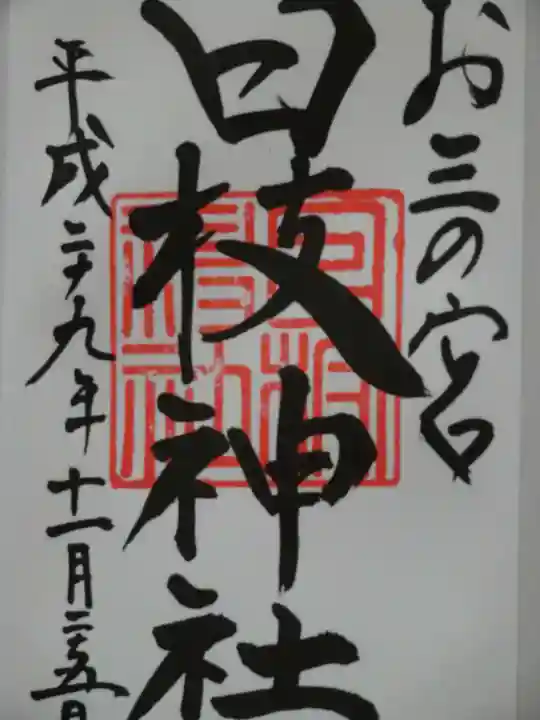 お三の宮
日枝神社
平成二十九年十一月二十五日